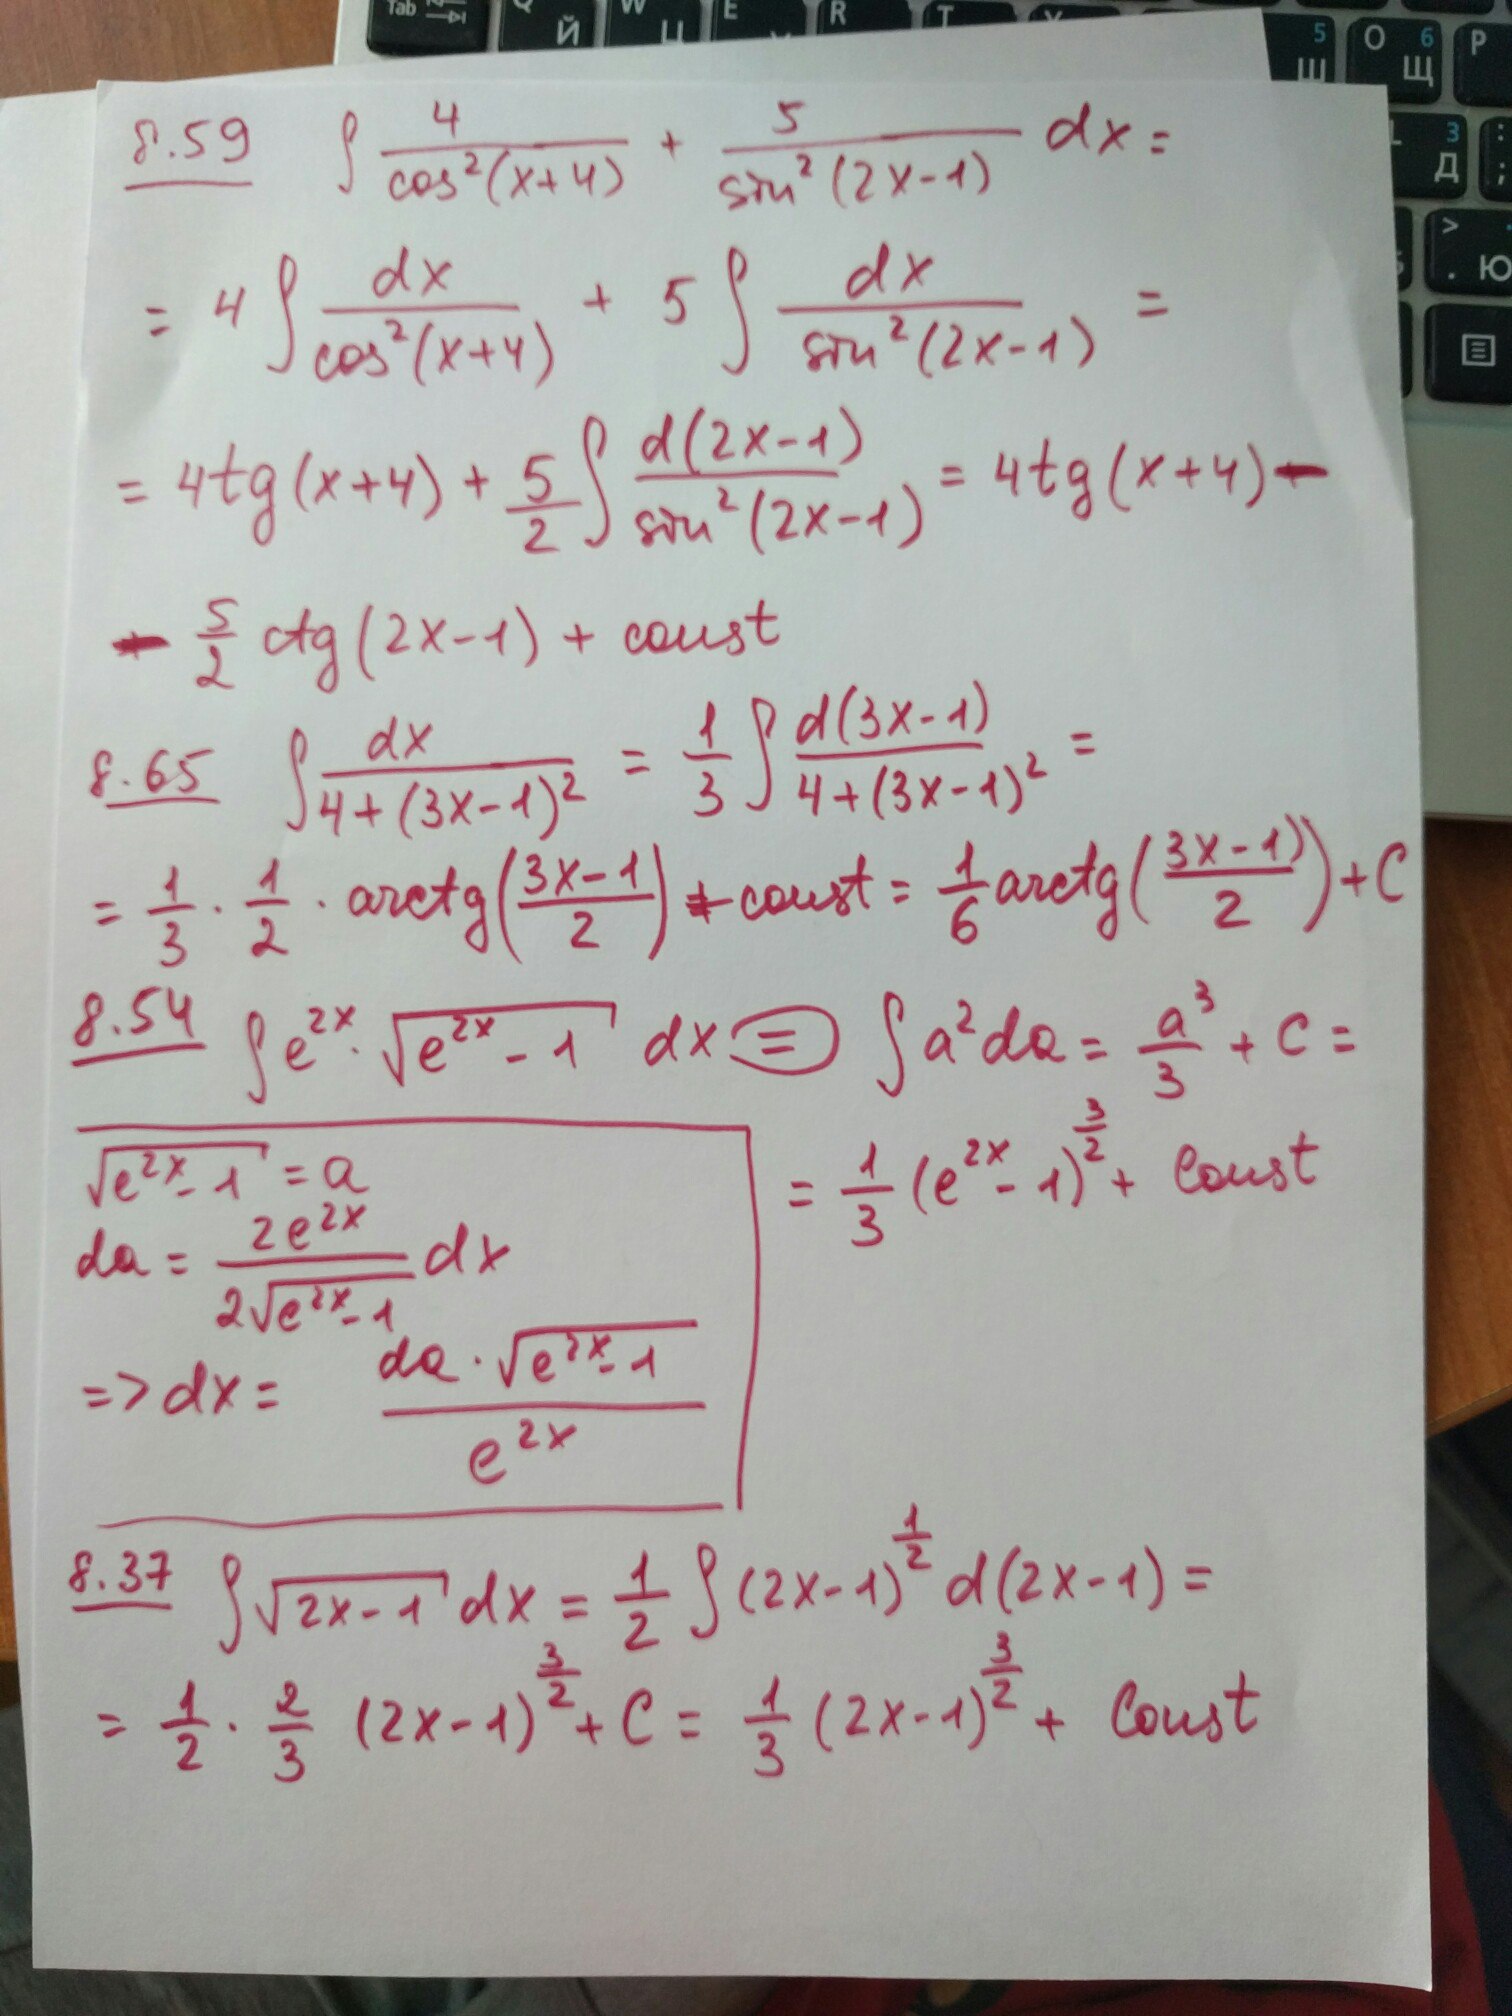 Tab Q Й W Ц E R T 5 Ш O 6 Щ P
3 Д : ;
> . Ю
8.59 ∫ 4/cos²(x+4) + 5/sin²(2x-1) dx =
= 4 ∫ dx/cos²(x+4) + 5 ∫ dx/sin²(2x-1) =
= 4tg(x+4) + 5/2 ∫ d(2x-1)/sin²(2x-1) = 4tg(x+4) -
- 5/2 ctg(2x-1) + const
8.65 ∫ dx/4+(3x-1)² = 1/3 ∫ d(3x-1)/4+(3x-1)² =
= 1/3 · 1/2 · arctg(3x-1/2) + const = 1/6 arctg(3x-1)/2) + C
8.54 ∫ e^2x · √(e^2x - 1) dx = ∫ a² da = a³/3 + C =
√(e^2x - 1) = a
da = 2e^2x/2√(e^2x - 1) dx
=> dx = da · √(e^2x - 1)/e^2x
= 1/3 (e^2x - 1)^3/2 + Const
8.37 ∫ √(2x-1) dx = 1/2 ∫ (2x-1)^1/2 d(2x-1) =
= 1/2 · 2/3 (2x-1)^3/2 + C = 1/3 (2x-1)^3/2 + Const